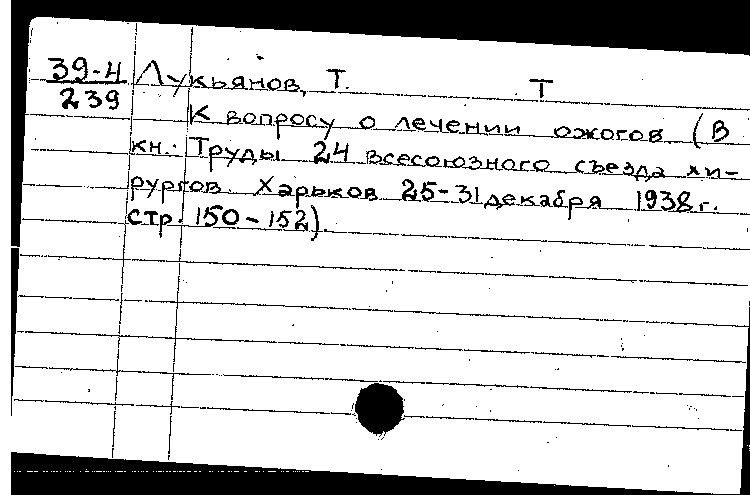 39-4 Лукьянов, Т. Т
239
К вопросу о лечении ожогов (В
кн.: Труды 24 всесоюзного съезда хи-
рургов. Харьков 25-31 декабря 1938 г.
стр. 150-152).